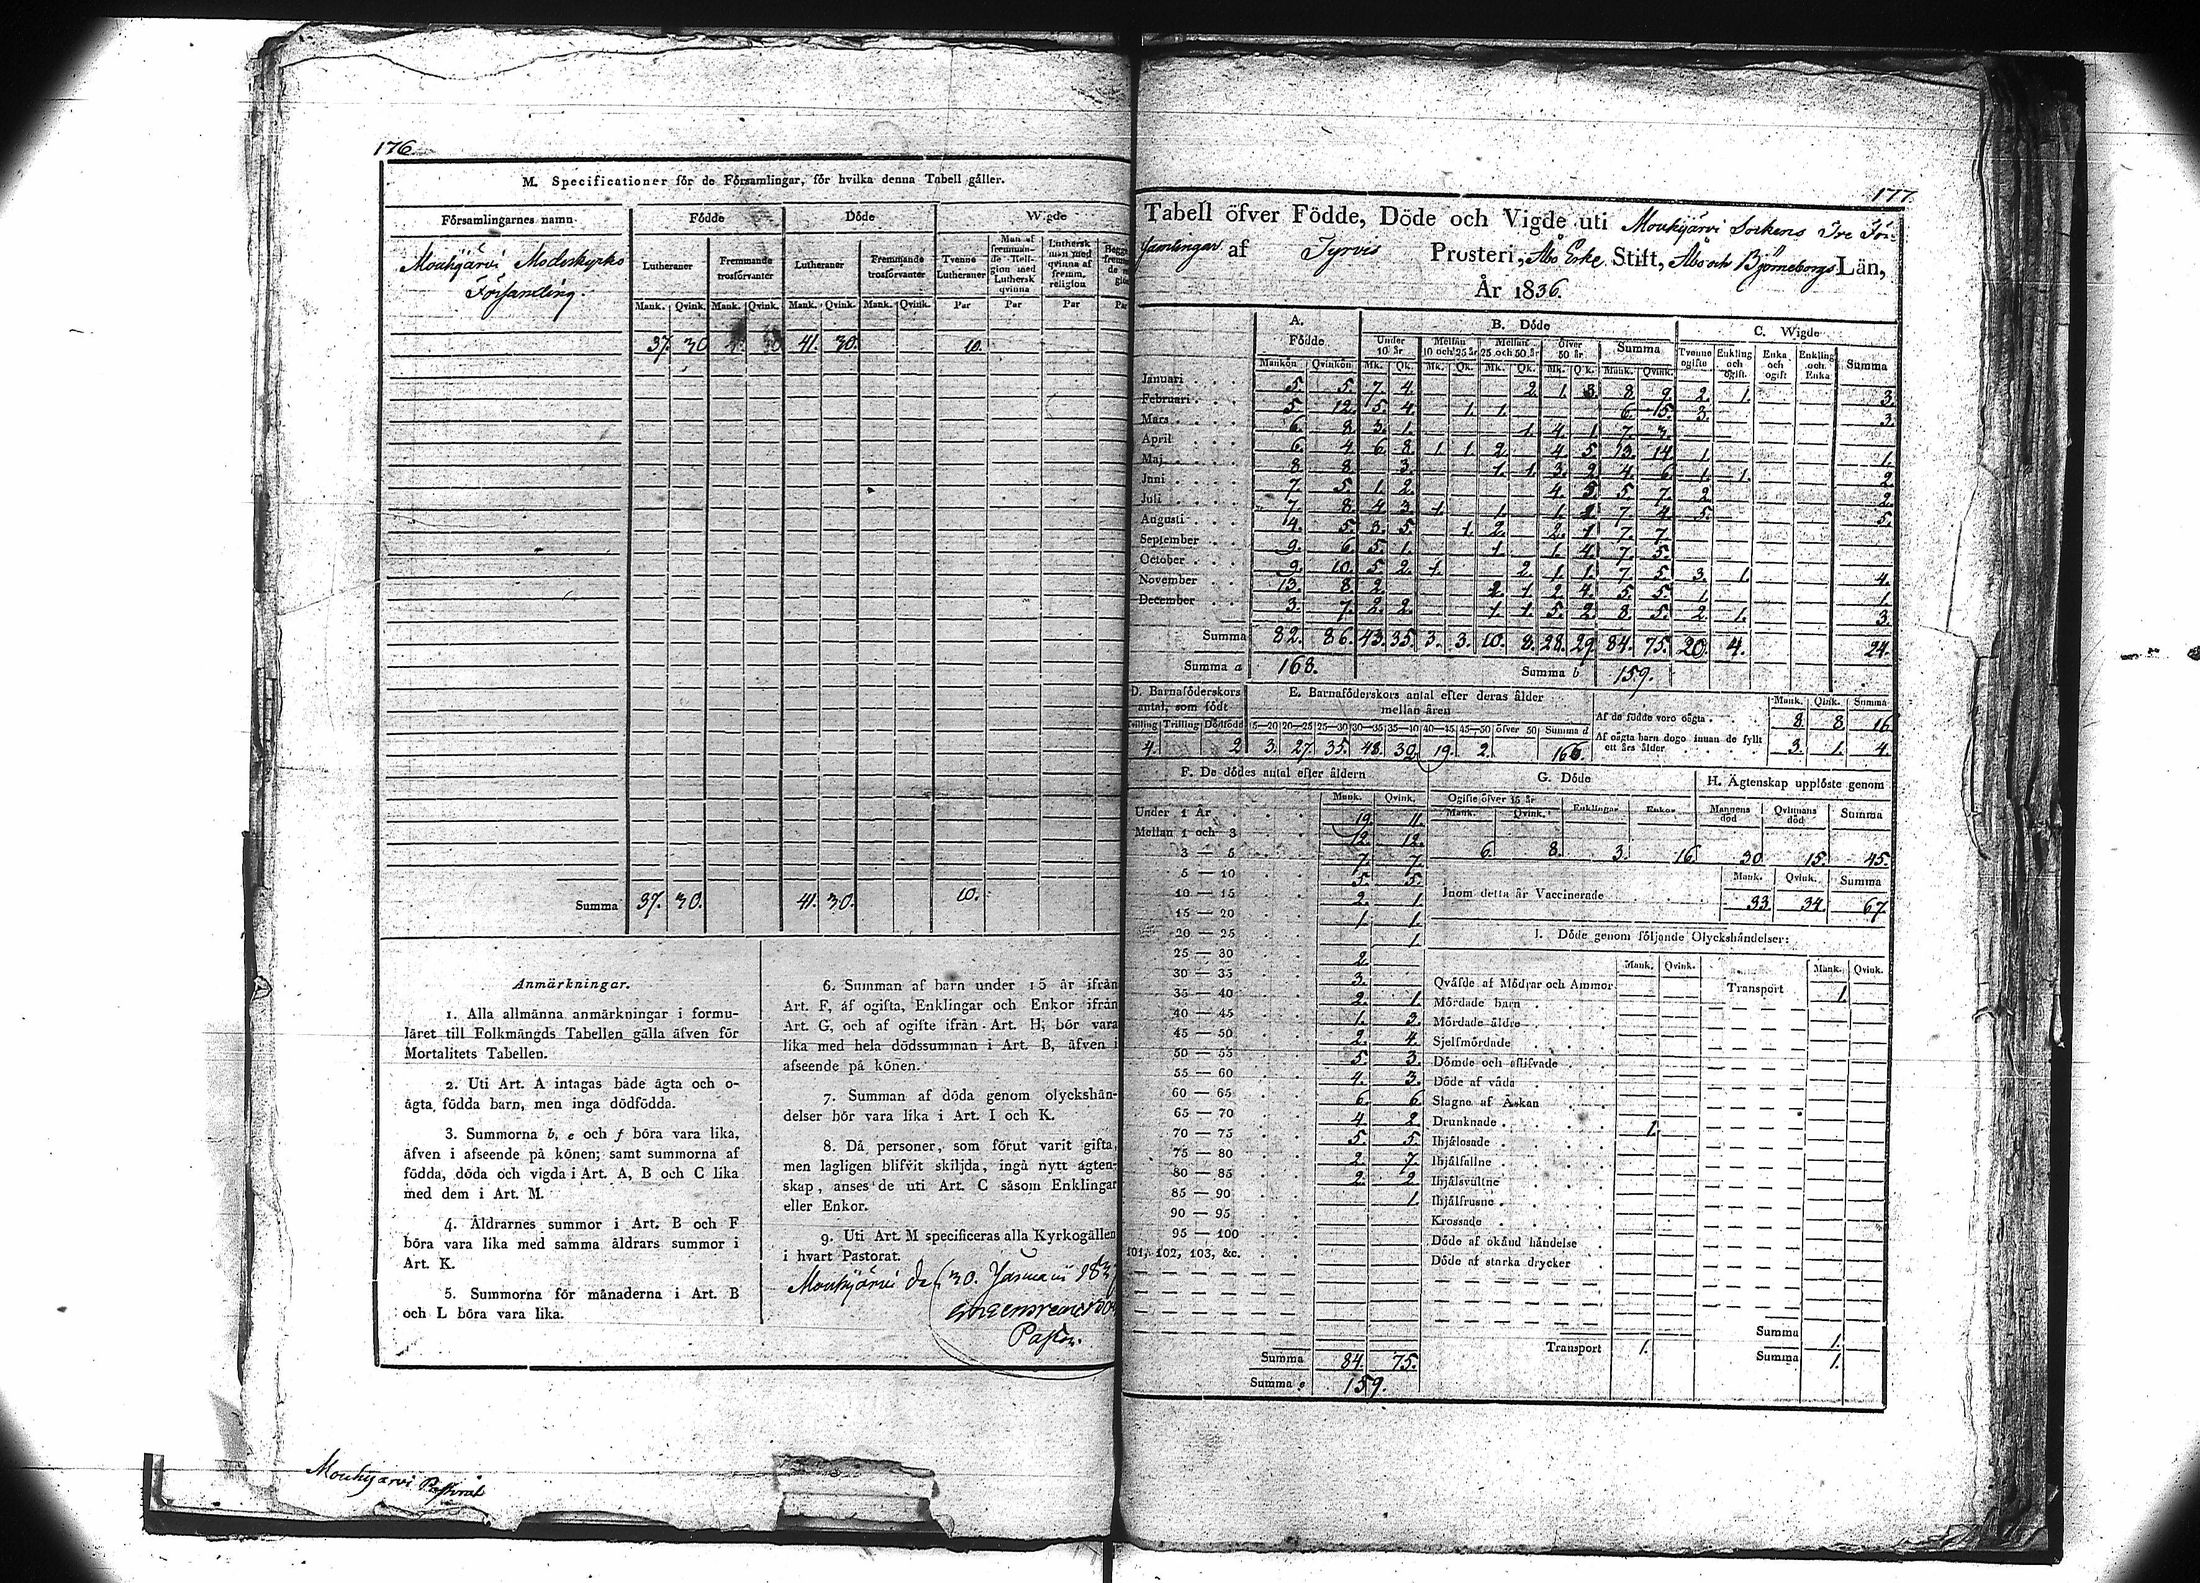 176
M. Specificationer för de Församlingar, för hvilka denna Tabell gäller.
Församlingarnes namn Födde Döde Wigde
Lutheraner Fremmande trosförvanter Lutheraner Fremmande trosförvanter Tvenne Lutheraner Man af fremman- de Reli- gion med Luthersk qvinna Luthersk man med qvinna af fremm. religion
Mank. Qvink. Mank. Qvink. Mank. Qvink. Mank. Qvink. Par Par Par Par
Mouhijärvi Moderkyrko
Församling.
37. 30 41. 30. 10.
Summa 37. 30. 41. 30. 10.
Anmärkningar.
1. Alla allmänna anmärkningar i formu-
läret till Folkmängds Tabellen gälla äfven för
Mortalitets Tabellen.
2. Uti Art. A intagas både ägta och o-
ägta födda barn, men inga dödfödda.
3. Summorna b, e och f böra vara lika,
äfven i afseende på könen; samt summorna af
födda, döda och vigda i Art. A, B och C lika
med dem i Art. M.
4. Åldrarnes summor i Art. B och F
böra vara lika med samma åldrars summor i
Art. K.
5. Summorna för månaderna i Art. B
och L böra vara lika.
6. Summan af barn under 15 år ifrån
Art. F, af ogifta, Enklingar och Enkor ifrån
Art. G, och af ogifte ifrån Art. H, bör vara
lika med hela dödssumman i Art. B, äfven i
afseende på könen.
7. Summan af döda genom olyckshän-
delser bör vara lika i Art. I och K.
8. Då personer, som förut varit gifta,
men lagligen blifvit skiljda, ingå nytt ägten-
skap, anses de uti Art. C såsom Enklingar
eller Enkor.
9. Uti Art. M specificeras alla Kyrkogällen
i hvart Pastorat.
Mouhijärvi den 30. Januarii 183
Pastor.
Mouhijärvi Pastorat
177
Tabell öfver Födde, Döde och Vigde uti Mouhijärvi Sockens Tre För-
samlingar af Tyrvis Prosteri, Åbo Erke Stift, Åbo och Björneborgs Län,
År 1836.
A. Födde B. Döde C. Wigde
Under 10 år Mellan 10 och 25 år Mellan 25 och 50 år öfver 50 år Summa Tvenne ogifte Enkling och ogift Enka och ogift Enkling och Enka Summa
Mankön Qvinkön Mk. Qk. Mk. Qk. Mk. Qk. Mk. Qk. Mank. Qvink.
Januari 5. 5. 7. 4. 2. 1. 3. 8. 9. 2. 1. 3.
Februari 5. 12. 5. 4. 1. 1. 6. 15. 3. 3.
Mars 6. 8. 3. 1. 1. 4. 1. 7. 3.
April 6. 4. 6. 8. 1. 1. 2. 4. 5. 13. 14. 1. 1.
Maj 8. 8. 3. 1. 1. 3. 2. 4. 6. 1. 1. 2.
Juni 7. 5. 1. 2. 4. 5. 5. 7. 2. 2.
Juli 7. 8. 4. 3. 1. 1. 1. 7. 4. 5. 5.
Augusti 4. 5. 3. 5. 1. 2. 2. 1. 7. 7.
September 9. 6. 5. 1. 1. 1. 4. 7. 5.
October 9. 10. 5. 2. 1. 2. 1. 1. 7. 5. 3. 1. 4.
November 13. 8. 2. 1. 2. 4. 5. 5. 1. 1.
December 3. 7. 2. 2. 1. 1. 5. 2. 8. 5. 2. 1. 3.
Summa 82. 86. 43. 35. 3. 3. 10. 8. 28. 29. 84. 75. 20. 4. 24.
Summa a 168. Summa b 159.
D. Barnaföderskors antal, som födt
Tvilling Trilling Dödfödd
4. 2
E. Barnaföderskors antal efter deras ålder mellan åren
15—20 20—25 25—30 30—35 35—40 40—45 45—50 öfver 50 Summa d
3. 27. 35. 48. 30. 19. 2. 166.
Mank. Qink. Summa
Af de födde voro oägta 8. 8. 16
Af oägta barn dogo innan de fyllt ett års ålder 3. 1. 4.
F. De dödes antal efter åldern
Mank. Qvink.
Under 1 År 19. 11.
Mellan 1 och 3 12. 12.
3 — 5 7. 7.
5 — 10 5. 5.
10 — 15 2. 1.
15 — 20 1. 1.
20 — 25 1.
25 — 30 2.
30 — 35 3.
35 — 40 2. 1.
40 — 45 1. 3.
45 — 50 2. 4.
50 — 55 5. 3.
55 — 60 4. 3.
60 — 65 6. 6
65 — 70 4. 2.
70 — 75 5. 5.
75 — 80 2. 7.
80 — 85 2. 2
85 — 90 1.
90 — 95
95 — 100
101, 102, 103, &c.
Summa 84. 75.
Summa e 159.
G. Döde
Ogifte öfver 15 år Enklingar Enkor
Mank. Qvink.
6. 8. 3. 16.
H. Ägtenskap upplöste genom
Mannens död Qvinnans död Summa
30 15. 45.
Mank. Qvink. Summa
Inom detta år Vaccinerade 33. 34. 67.
I. Döde genom följande Olyckshändelser:
Mank. Qvink. Mank. Qvink.
Qväfde af Mödrar och Ammor
Transport 1.
Mördade barn
Mördade äldre
Sjelfmördade
Dömde och aflifvade
Döde af våda
Slagne af Åskan
Drunknade 1.
Ihjälosade
Ihjälfallne
Ihjälsvultne
Ihjälfrusne
Krossade
Döde af okänd händelse
Döde af starka drycker
Summa 1.
Transport 1. Summa 1.